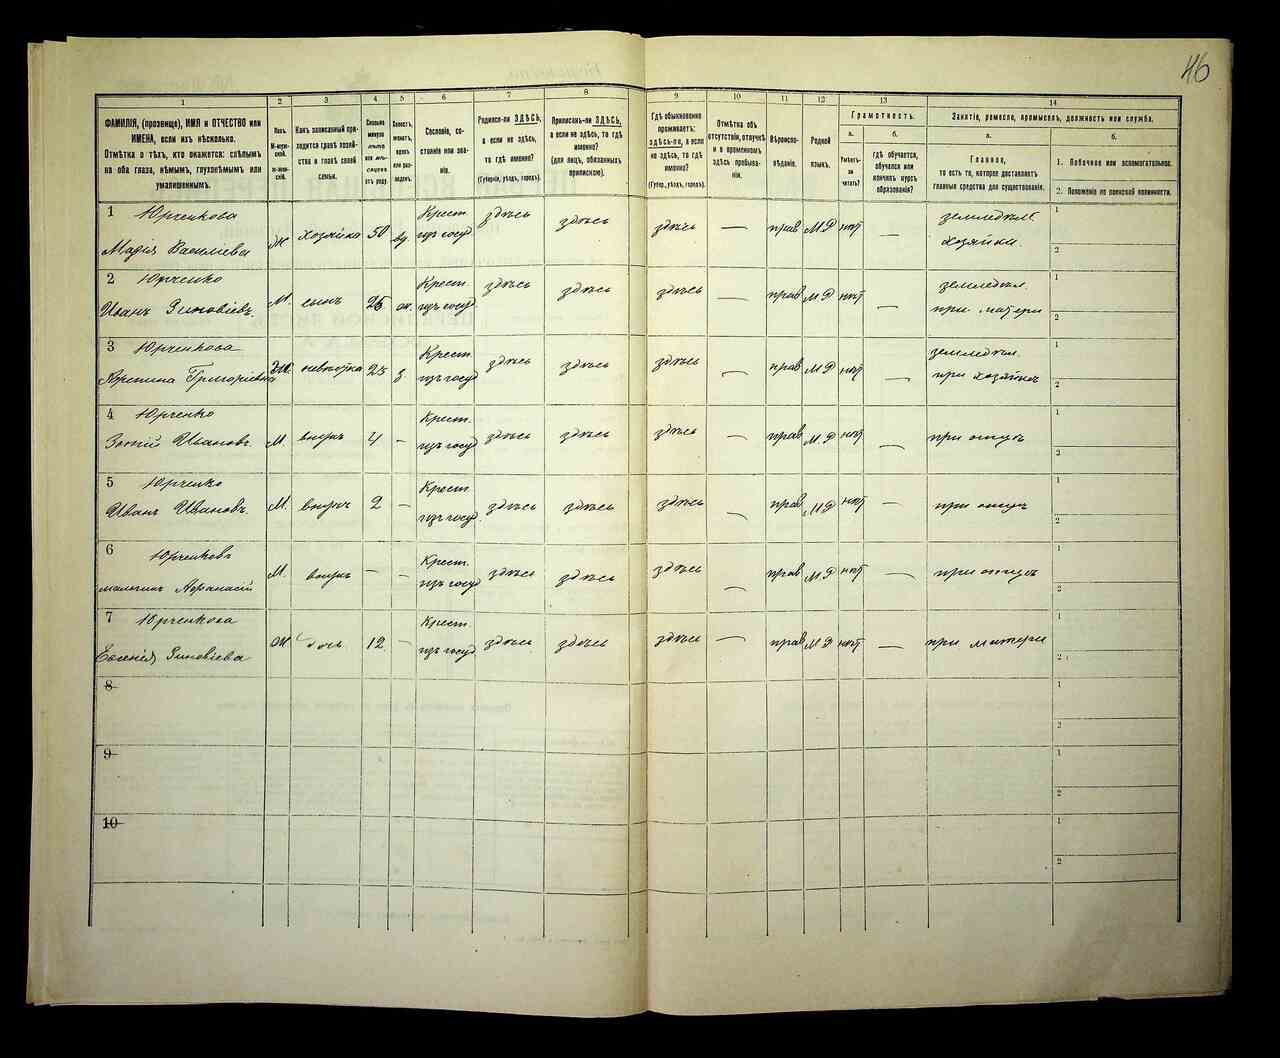 46
1
2
3
4
5
6
7
8
9
10
11
12
13
14
ФАМИЛІЯ, (прозвище), ИМЯ и ОТЧЕСТВО или
ИМЕНА, если ихъ нѣсколько.
Отмѣтка о тѣхъ, кто окажется: слѣпымъ
на оба глаза, нѣмымъ, глухонѣмымъ или
умалишеннымъ.
Полъ.
М-мужской.
Ж-женскій.
Какъ записанный приходится
главѣ хозяйства
и главѣ своей
семьи.
Сколько
минуло
лѣтъ
или мѣсяцевъ
отъ роду.
Холостъ,
женатъ,
вдовъ
или разведенъ.
Сословіе, состояніе
или званіе.
Родился-ли ЗДѢСЬ,
а если не здѣсь,
то гдѣ именно?
(Губернія, уѣздъ, городъ).
Приписанъ-ли ЗДѢСЬ,
а если не здѣсь, то гдѣ
именно?
(для лицъ, обязанныхъ
припискою).
Гдѣ обыкновенно
проживаетъ:
ЗДѢСЬ-ли, а если
не здѣсь, то гдѣ
именно?
(Губер., уѣздъ, городъ).
Отмѣтка объ
отсутствіи, отлучкѣ
и о временномъ
здѣсь пребываніи.
Вѣроисповѣданіе.
Родной
языкъ.
Грамотность.
а.
Умѣетъ-ли
читать?
б.
гдѣ обучается,
обучался или
кончилъ курсъ
образованія?
Занятіе, ремесло, промыселъ, должность или служба.
а.
Главное,
то есть то, которое доставляетъ
главныя средства для существованія.
б.
1. Побочное или вспомогательное.
2. Положеніе по воинской повинности.
1 Юрченкова
Марія Васильева Ж хозяйка 50 вд. Крест. изъ госуд. здѣсь здѣсь здѣсь — прав М Р нѣт — земледѣл. хозяйка. 1 2
2 Юрченко
Иванъ Зиновіевъ. М. сынъ 25 ж. Крест. изъ госуд. здѣсь здѣсь здѣсь — прав М Р нѣт — земледѣл. при матери 1 2
3 Юрченкова
Григоріевна Ж. невѣстка 25 з Крест. изъ госуд здѣсь здѣсь здѣсь — прав М Р нѣт — земледѣл. при хозяйкѣ 1 2
4 Юрченко
Ивановъ М. внукъ 4 — Крест. изъ госуд здѣсь здѣсь здѣсь — прав М Р нѣт — при отцѣ 1 2
5 Юрченко
Иванъ Ивановъ. М. внукъ 2 — Крест. изъ госуд. здѣсь здѣсь здѣсь — прав М Р нѣт — при отцѣ 1 2
6 Юрченковъ
мальчикъ Афанасій М. внукъ — — Крест. изъ госуд здѣсь здѣсь здѣсь — прав М Р нѣт — при отцѣ 1 2
7 Юрченкова
Евгенія Зиновіева Ж. дочь 12 — Крест. изъ госуд здѣсь здѣсь здѣсь — прав М Р нѣт — при матери 1 2
8 1 2
9 1 2
10 1 2